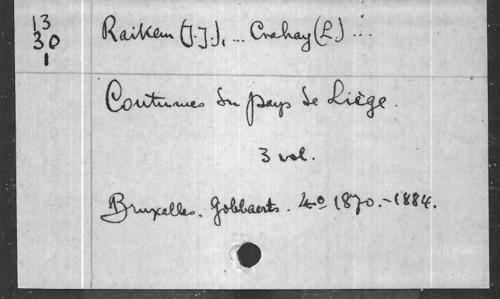 13
30
1
Raikem (J.J.), ... Crahay (L.) ...
Coutumes du pays de Liège.
3 vol.
Bruxelles. Gobbaerts. 4º 1870.-1884.